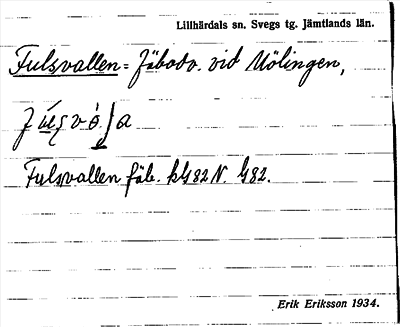 Lillhärdals sn. Svegs tg. Jämtlands län.
Fulsvallen = Fäbodv. vid Mölingen,
Fulsvallen fäb. kG82N. G82.
Erik Eriksson 1934.